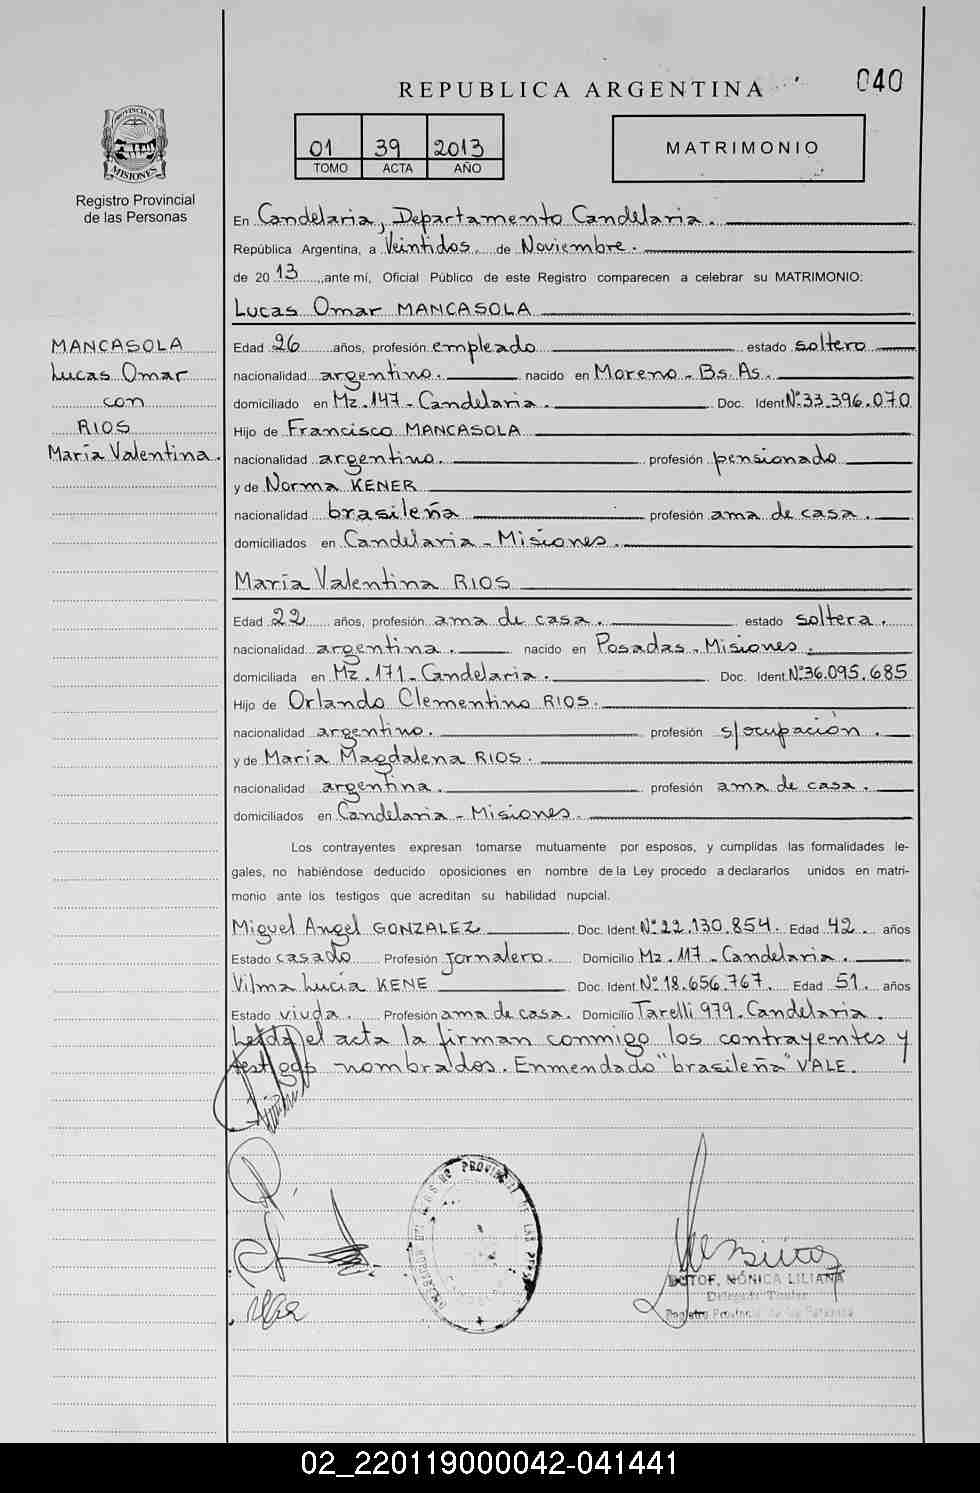 REPUBLICA ARGENTINA
040
PROVINCIA DE
MISIONES
Registro Provincial
de las Personas
01 39 2013
TOMO ACTA AÑO
MATRIMONIO
En Candelaria, Departamento Candelaria.
República Argentina, a Veintidos de Noviembre.
de 2013, ante mí, Oficial Público de este Registro comparecen a celebrar su MATRIMONIO:
Lucas Omar MANCASOLA
MANCASOLA
Lucas Omar
con
RIOS
María Valentina.
Edad 26 años, profesión empleado estado soltero
nacionalidad argentino. nacido en Moreno - Bs. As.
domiciliado en Mz. 147 - Candelaria. Doc. Ident. Nº 33.396.070
Hijo de Francisco MANCASOLA
nacionalidad argentino. profesión pensionado
y de Norma KENER
nacionalidad brasileña profesión ama de casa.
domiciliados en Candelaria - Misiones.
María Valentina RIOS
Edad 22 años, profesión ama de casa. estado soltera.
nacionalidad argentina. nacido en Posadas - Misiones.
domiciliada en Mz. 171 - Candelaria. Doc. Ident. Nº 36.095.685
Hijo de Orlando Clementino RIOS.
nacionalidad argentino. profesión s/ocupación.
y de María Magdalena RIOS.
nacionalidad argentina. profesión ama de casa.
domiciliados en Candelaria - Misiones.
Los contrayentes expresan tomarse mutuamente por esposos, y cumplidas las formalidades le-
gales, no habiéndose deducido oposiciones en nombre de la Ley procedo a declararlos unidos en matri-
monio ante los testigos que acreditan su habilidad nupcial.
Miguel Angel GONZALEZ Doc. Ident. Nº 22.130.854. Edad 42. años
Estado casado Profesión Jornalero. Domicilio Mz. 117 - Candelaria.
Vilma Lucía KENE Doc. Ident. Nº 18.656.767. Edad 51. años
Estado viuda. Profesión ama de casa. Domicilio Tarelli 979. Candelaria.
Leída el acta la firman conmigo los contrayentes y
testigos nombrados. Enmendado "brasileña" VALE.
PROVINCIAL DE LAS
BOTOF, MÓNICA LILIANA
Delegada Titular
Registro Provincial de las Personas
02_220119000042-041441